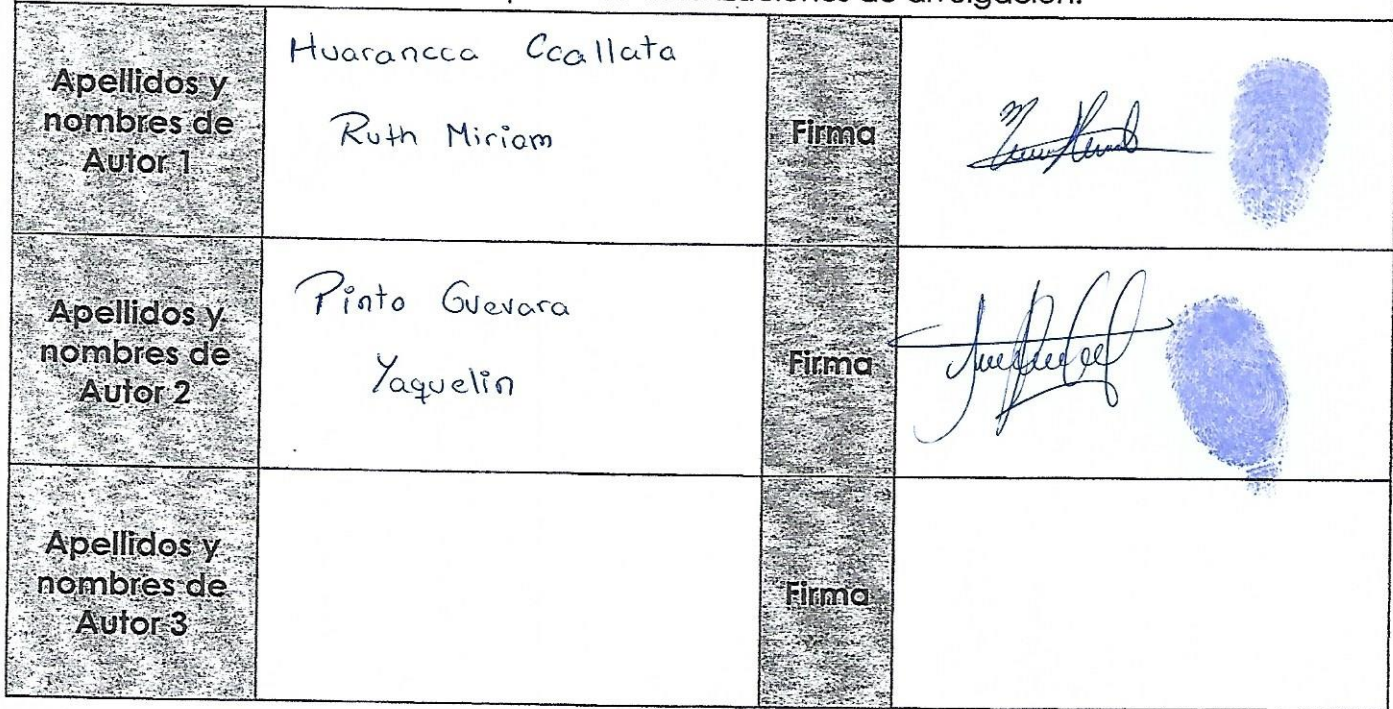 de divulgación.
Apellidos y
nombres de
Autor 1
Huarancca Ccallata
Ruth Miriam
Firma
Apellidos y
nombres de
Autor 2
Pinto Guevara
Yaquelin
Firma
Apellidos y
nombres de
Autor 3
Firma